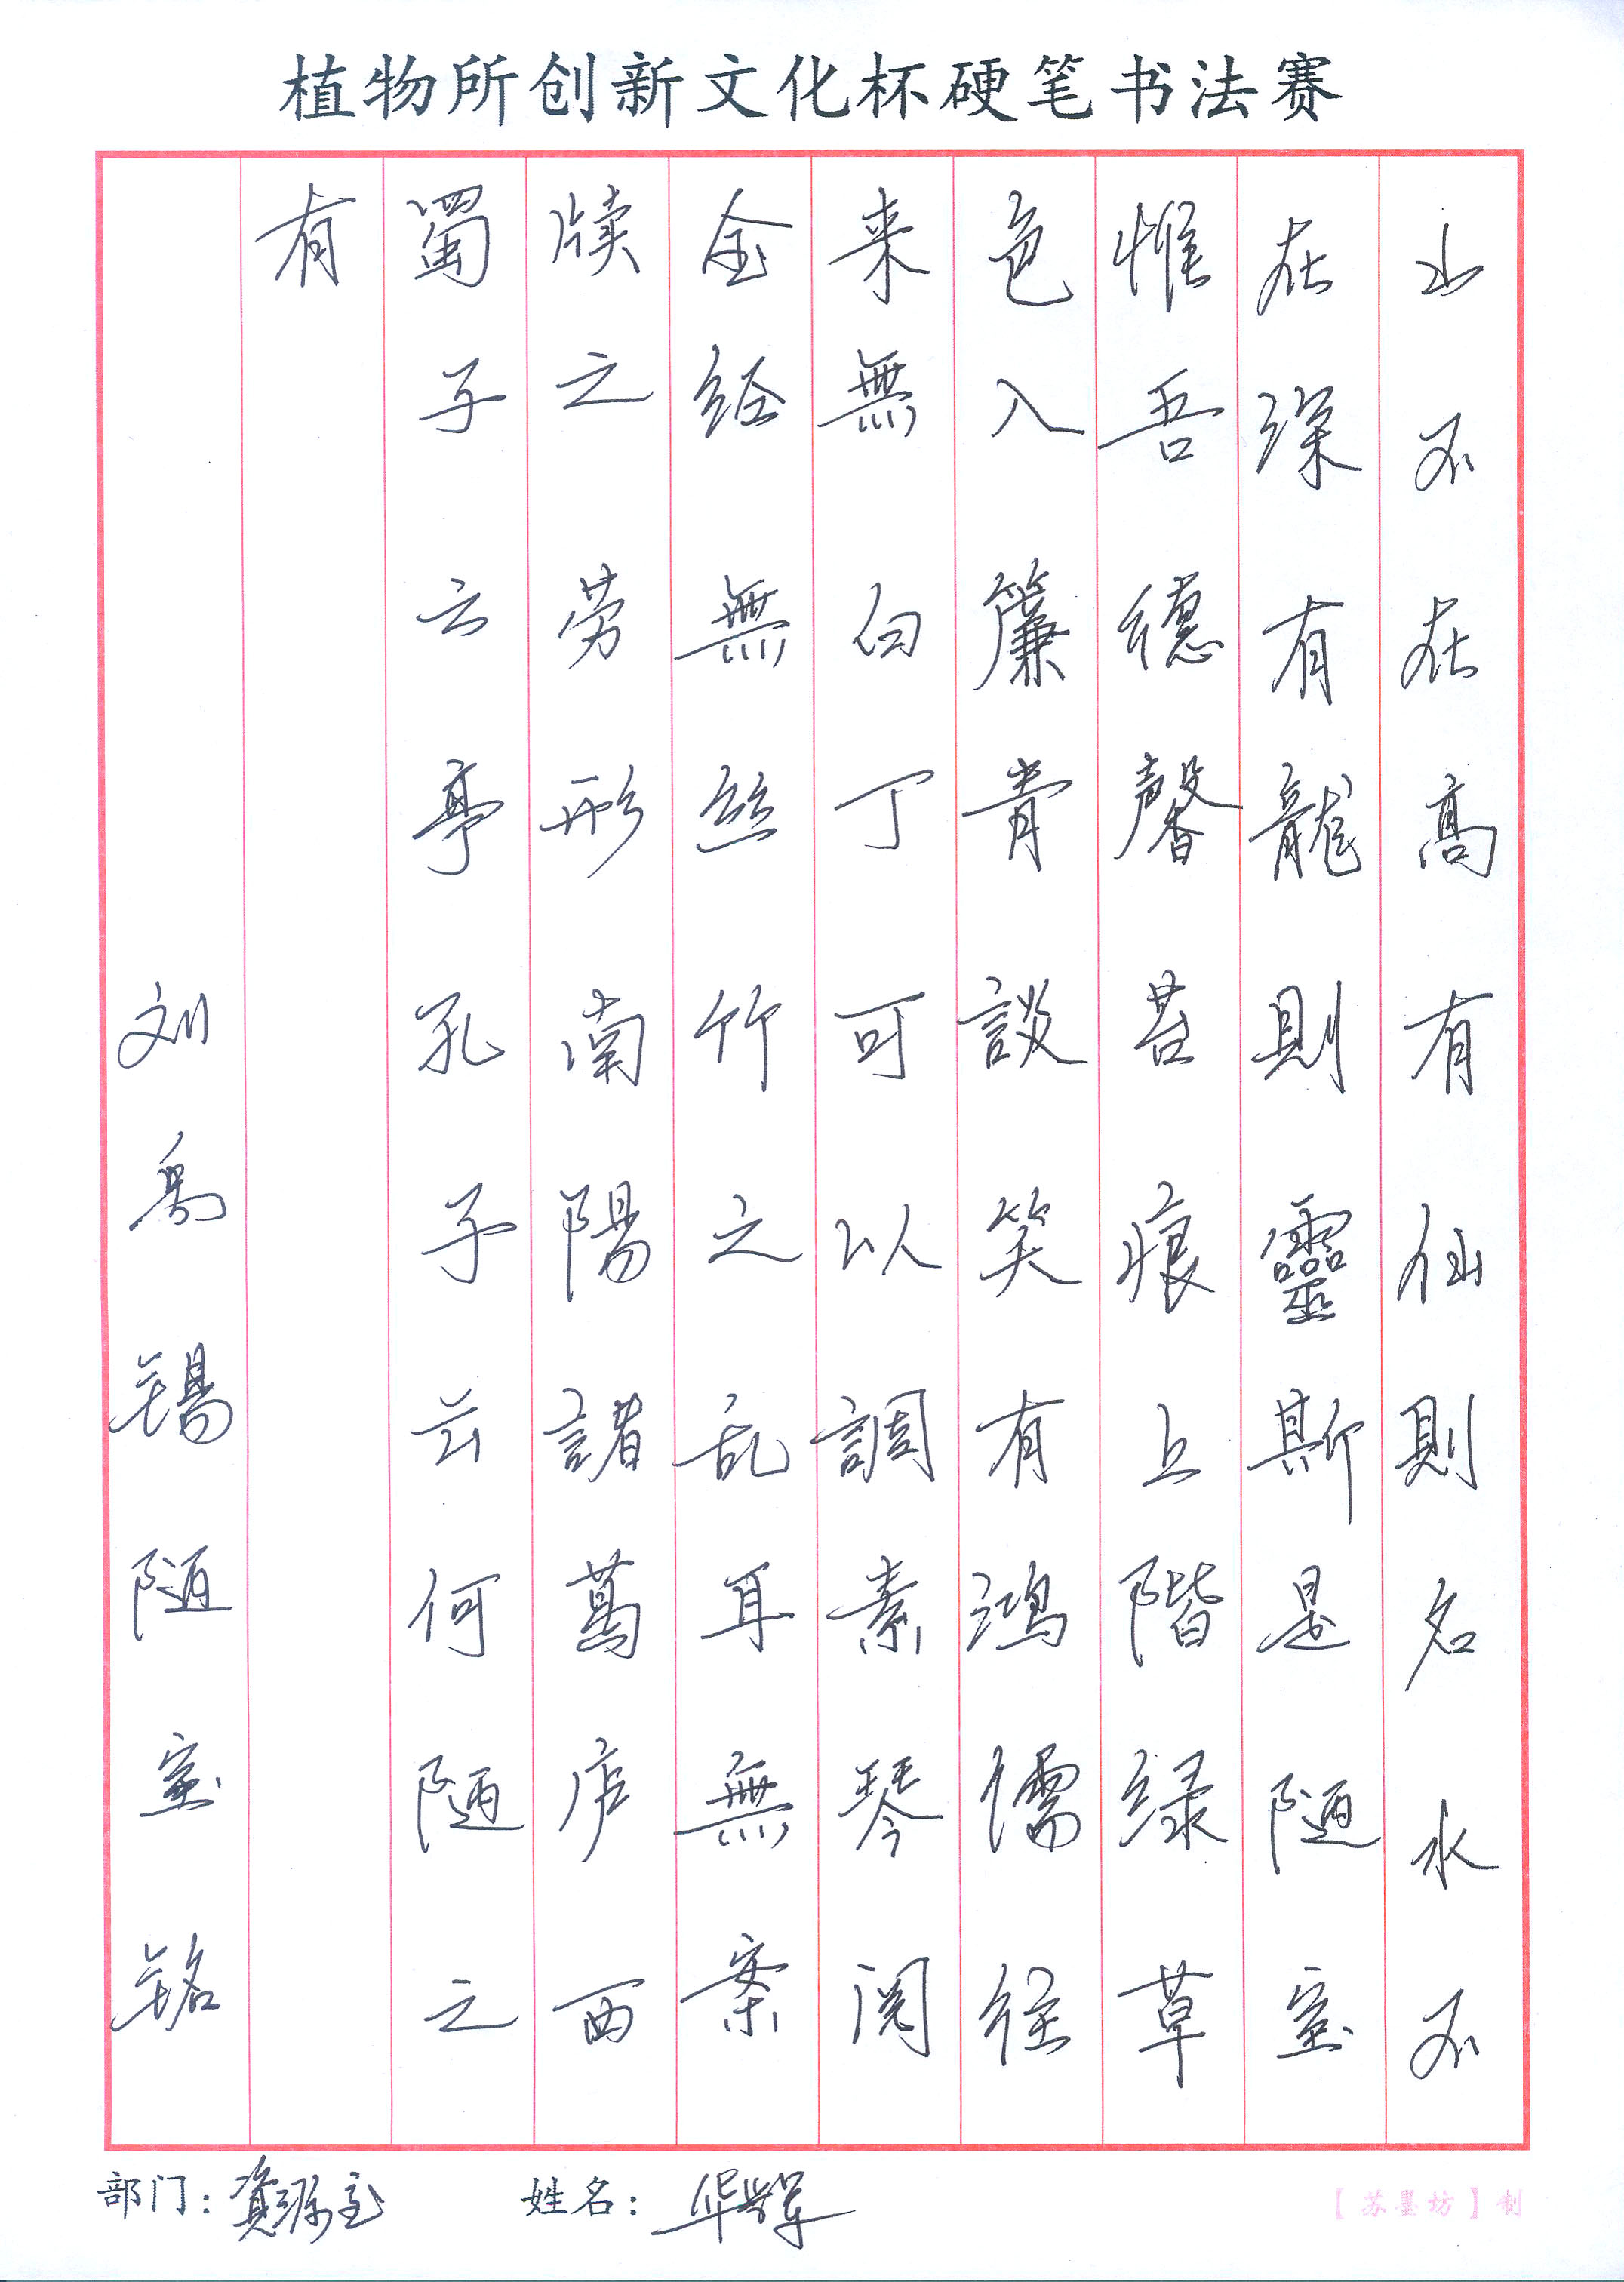 植物所创新文化杯硬笔书法赛
山不在高有仙則名水不
在深有龍則靈斯是陋室
惟吾德馨苔痕上階緑草
色入簾青談笑有鴻儒往
来無白丁可以調素琴阅
金经無絲竹之乱耳無案
牍之劳形南陽諸葛庐西
蜀子云亭孔子云何陋之
有
刘禹锡陋室铭
部门：資源室 姓名：
【苏墨坊】制